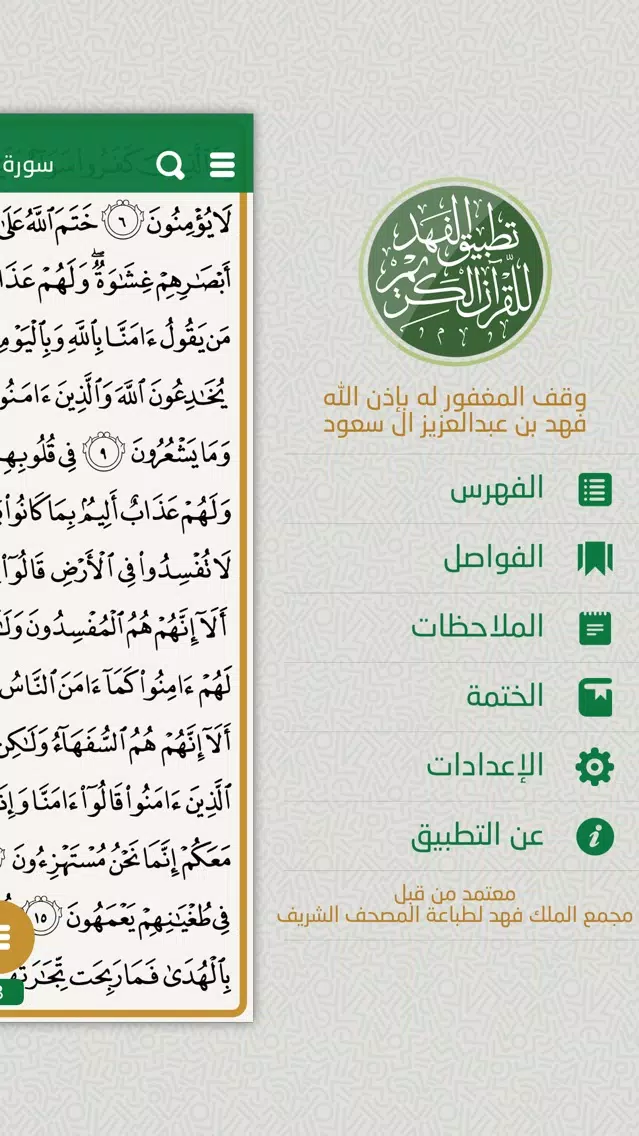 سورة
لَا يُؤْمِنُونَ ٦ خَتَمَ ٱللَّهُ عَلَىٰ
أَبْصَٰرِهِمْ غِشَٰوَةٌۖ وَلَهُمْ عَذَا
مَن يَقُولُ ءَامَنَّا بِٱللَّهِ وَبِٱلْيَوْمِ
يُخَٰدِعُونَ ٱللَّهَ وَٱلَّذِينَ ءَامَنُو
وَمَا يَشْعُرُونَ ٩ فِى قُلُوبِهِ
وَلَهُمْ عَذَابٌ أَلِيمٌۢ بِمَا كَانُوا۟
لَا تُفْسِدُوا۟ فِى ٱلْأَرْضِ قَالُوٓا۟
أَلَآ إِنَّهُمْ هُمُ ٱلْمُفْسِدُونَ وَلَٰ
لَهُمْ ءَامِنُوا۟ كَمَآ ءَامَنَ ٱلنَّاسُ
أَلَآ إِنَّهُمْ هُمُ ٱلسُّفَهَآءُ وَلَٰكِن
ٱلَّذِينَ ءَامَنُوا۟ قَالُوٓا۟ ءَامَنَّا وَإِذَ
مَعَكُمْ إِنَّمَا نَحْنُ مُسْتَهْزِءُونَ
فِى طُغْيَٰنِهِمْ يَعْمَهُونَ ١٥
بِٱلْهُدَىٰ فَمَا رَبِحَت تِّجَٰرَتُه
تطبيق الفهد
للقرآن الكريم
وقف المغفور له بإذن الله
فهد بن عبدالعزيز ال سعود
الفهرس
الفواصل
الملاحظات
الختمة
الإعدادات
عن التطبيق
معتمد من قبل
مجمع الملك فهد لطباعة المصحف الشريف